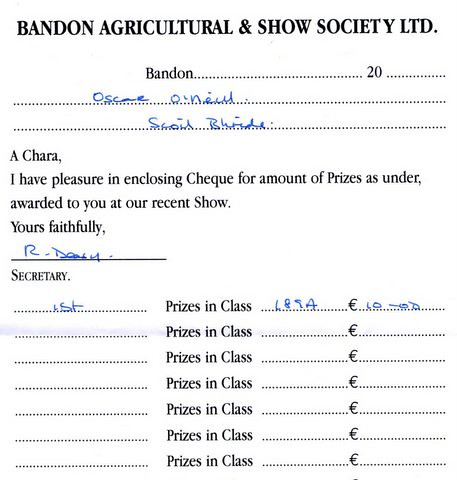 BANDON AGRICULTURAL & SHOW SOCIETY LTD.
Bandon.................................................. 20 ..................
Oscar O'Neill.
Scoil Bhríde.
A Chara,
I have pleasure in enclosing Cheque for amount of Prizes as under,
awarded to you at our recent Show.
Yours faithfully,
R. Deasy.
SECRETARY.
1st Prizes in Class 189A € 10-00
Prizes in Class €
Prizes in Class €
Prizes in Class €
Prizes in Class €
Prizes in Class €
Prizes in Class €